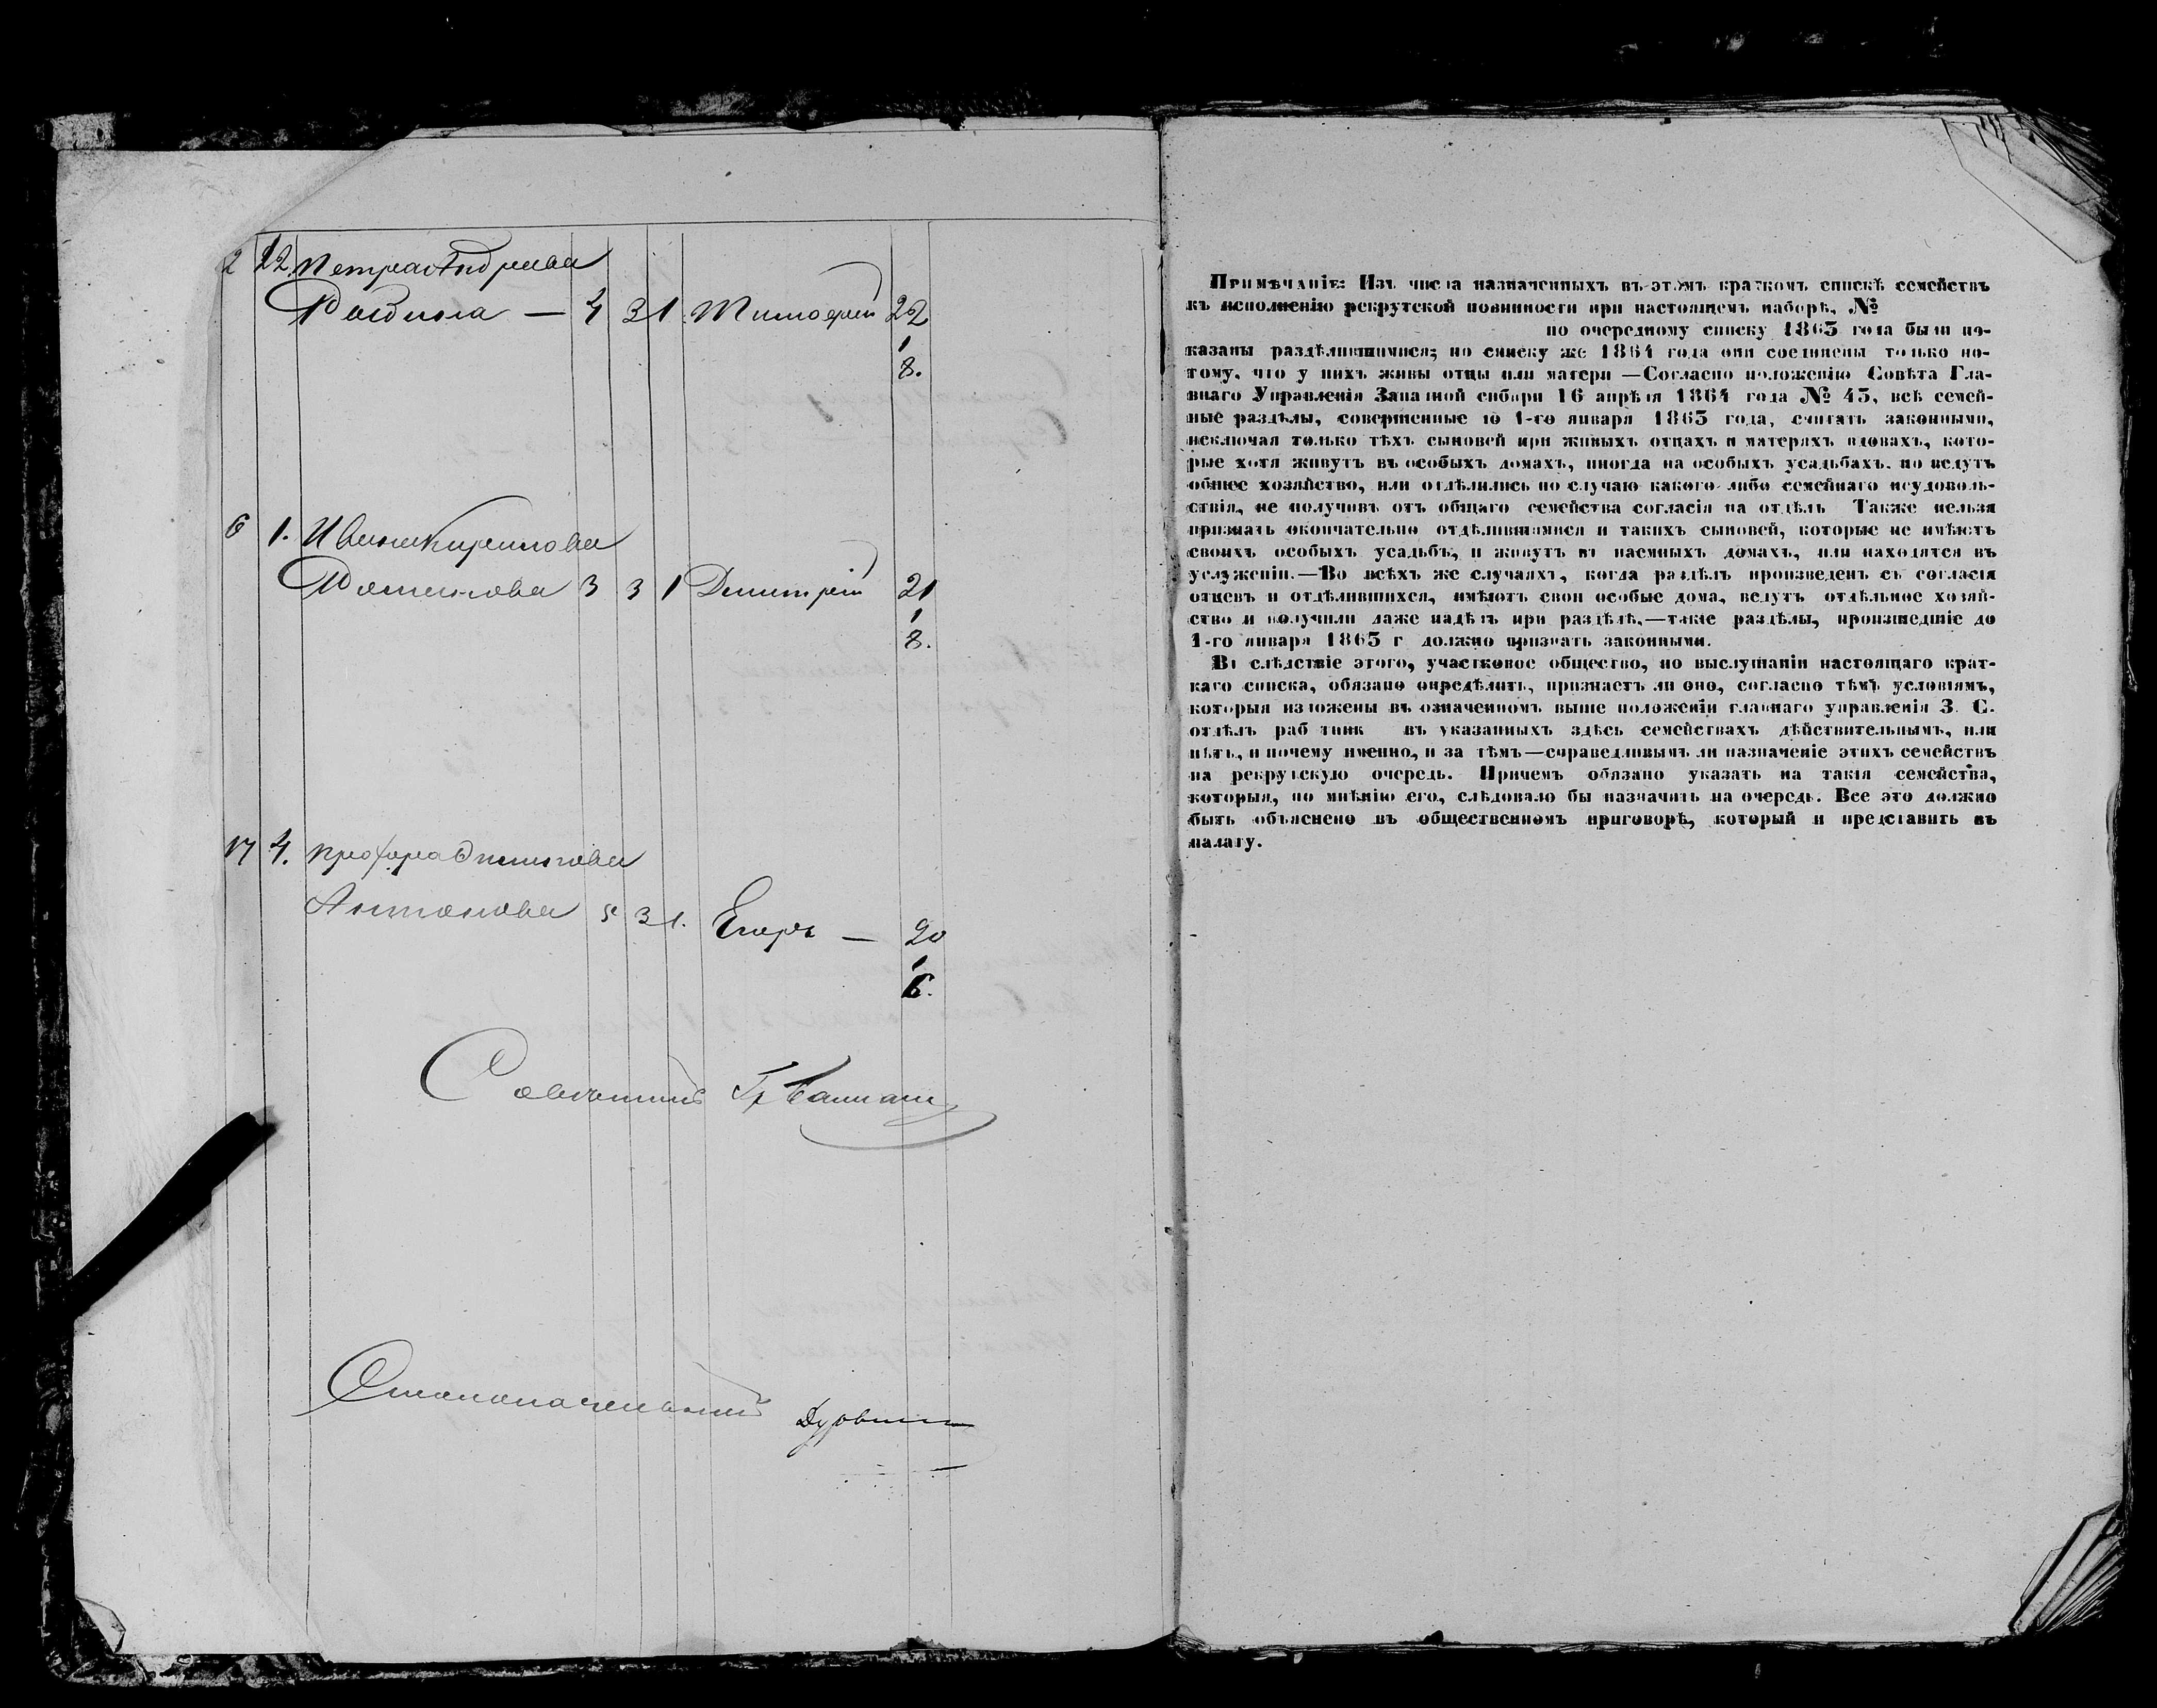 2 22. Петра Андреева
Родина — 4 3 1 Тимофей 22
1
8.
6 1. Ивана Кирилова
Фотинова 3 3 1 Дмитрій 21
1
8.
17 4. Прохора
Антонова 5 3 1. Егоръ — 20
1
6.
Совѣтникъ
Столоначальникъ
Примѣчаніе: Изъ числа назначенныхъ въ этомъ краткомъ спискѣ семействъ
къ исполненію рекрутской повинности при настоящемъ наборѣ, №
по очередному списку 1863 года были по-
казаны раздѣлившимися; по списку же 1864 года они соединены только по-
тому, что у нихъ живы отцы или матери —Согласно положенію Совѣта Гла-
внаго Управленія Западной сибири 16 апрѣля 1864 года № 45, всѣ семей-
ные раздѣлы, совершенные до 1-го января 1863 года, считать законными,
исключая только тѣхъ сыновей при живыхъ отцахъ и матеряхъ вдовахъ, кото-
рые хотя живутъ въ особыхъ домахъ, иногда на особыхъ усадьбахъ, но ведутъ
общее хозяйство, или отдѣлились по случаю какого либо семейнаго неудоволь-
ствія, не получивъ отъ общаго семейства согласія на отдѣлъ Также нельзя
признать окончательно отдѣлившимися и такихъ сыновей, которые не имѣютъ
своихъ особыхъ усадьбъ, и живутъ въ наемныхъ домахъ, или находятся въ
услуженіи.—Во всѣхъ же случаяхъ, когда раздѣлъ произведенъ съ согласія
отцевъ и отдѣлившихся, имѣютъ свои особые дома, ведутъ отдѣльное хозяй-
ство и получили даже надѣлъ при раздѣлѣ,—такіе раздѣлы, произшедшіе до
1-го января 1863 г должно признать законными.
Въ слѣдствіе этого, участковое общество, по выслушаніи настоящаго крат-
каго списка, обязано опредѣлить, признаетъ ли оно, согласно тѣмъ условіямъ,
которыя изложены въ означенномъ выше положеніи главнаго управленія З. С.
отдѣлъ раб тник въ указанныхъ здѣсь семействахъ дѣйствительнымъ, или
нѣтъ, и почему именно, и за тѣмъ—справедливымъ ли назначеніе этихъ семействъ
на рекрутскую очередь. Причемъ обязано указать на такія семейства,
которыя, по мнѣнію его, слѣдовало бы назначить на очередь. Все это должно
быть объяснено въ общественномъ приговорѣ, который и представить въ
палату.